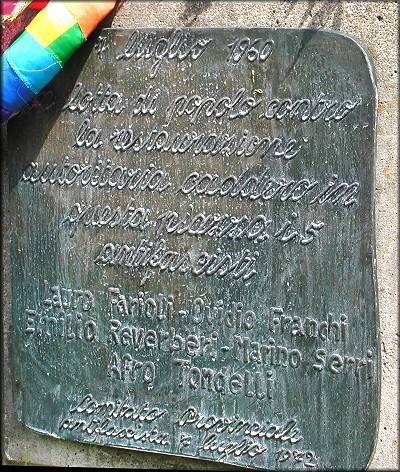 7 luglio 1960
in lotta di popolo contro
la restaurazione
autoritaria caddero in
questa piazza i 5
antifascisti
Lauro Farioli - Ovidio Franchi
Emilio Reverberi - Marino Serri
Afro Tondelli
Comitato Provinciale
antifascista 7 luglio 1972